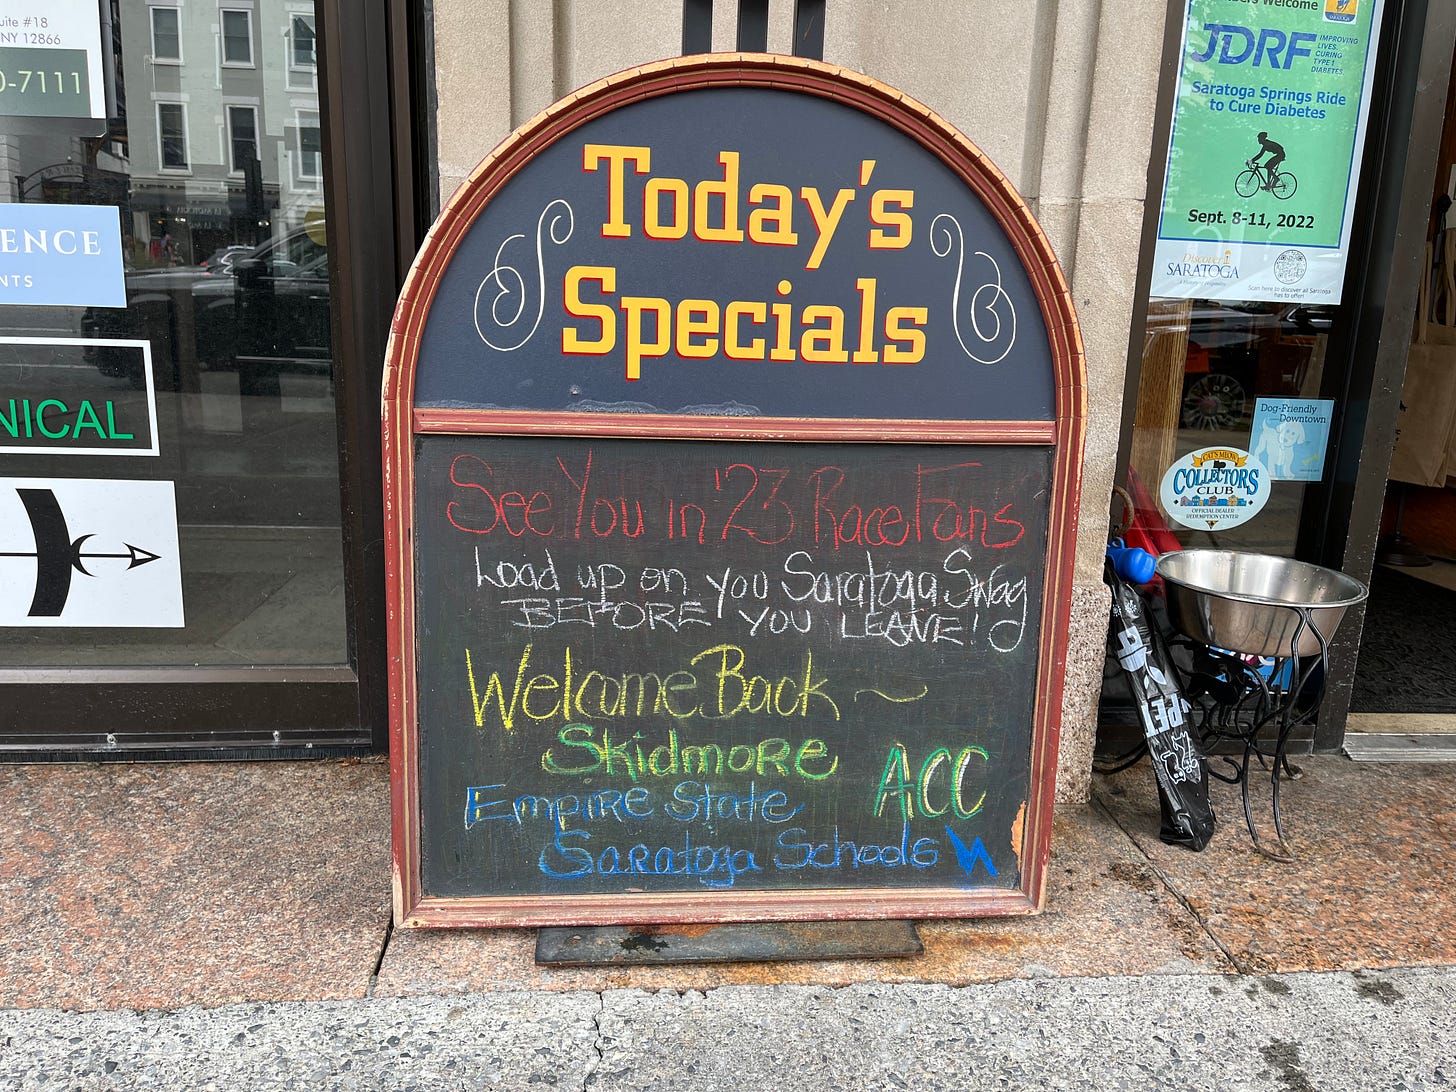 uite #18
NY 12866
0-7111
ENCE
NTS
NICAL
Today's
Specials
See You in '23 Race Fans
Load up on you Saratoga Swag
BEFORE YOU LEAVE!
Welcome Back ~
Skidmore
ACC
Empire State
Saratoga Schools
Welcome
JDRF
IMPROVING
LIVES.
CURING
TYPE 1
DIABETES.
Saratoga Springs Ride
to Cure Diabetes
Sept. 8-11, 2022
Discover
SARATOGA
Scan here to discover all Saratoga
has to offer!
Dog-Friendly
Downtown
CAT'S MEOW
COLLECTORS
CLUB
OFFICIAL DEALER
REDEMPTION CENTER